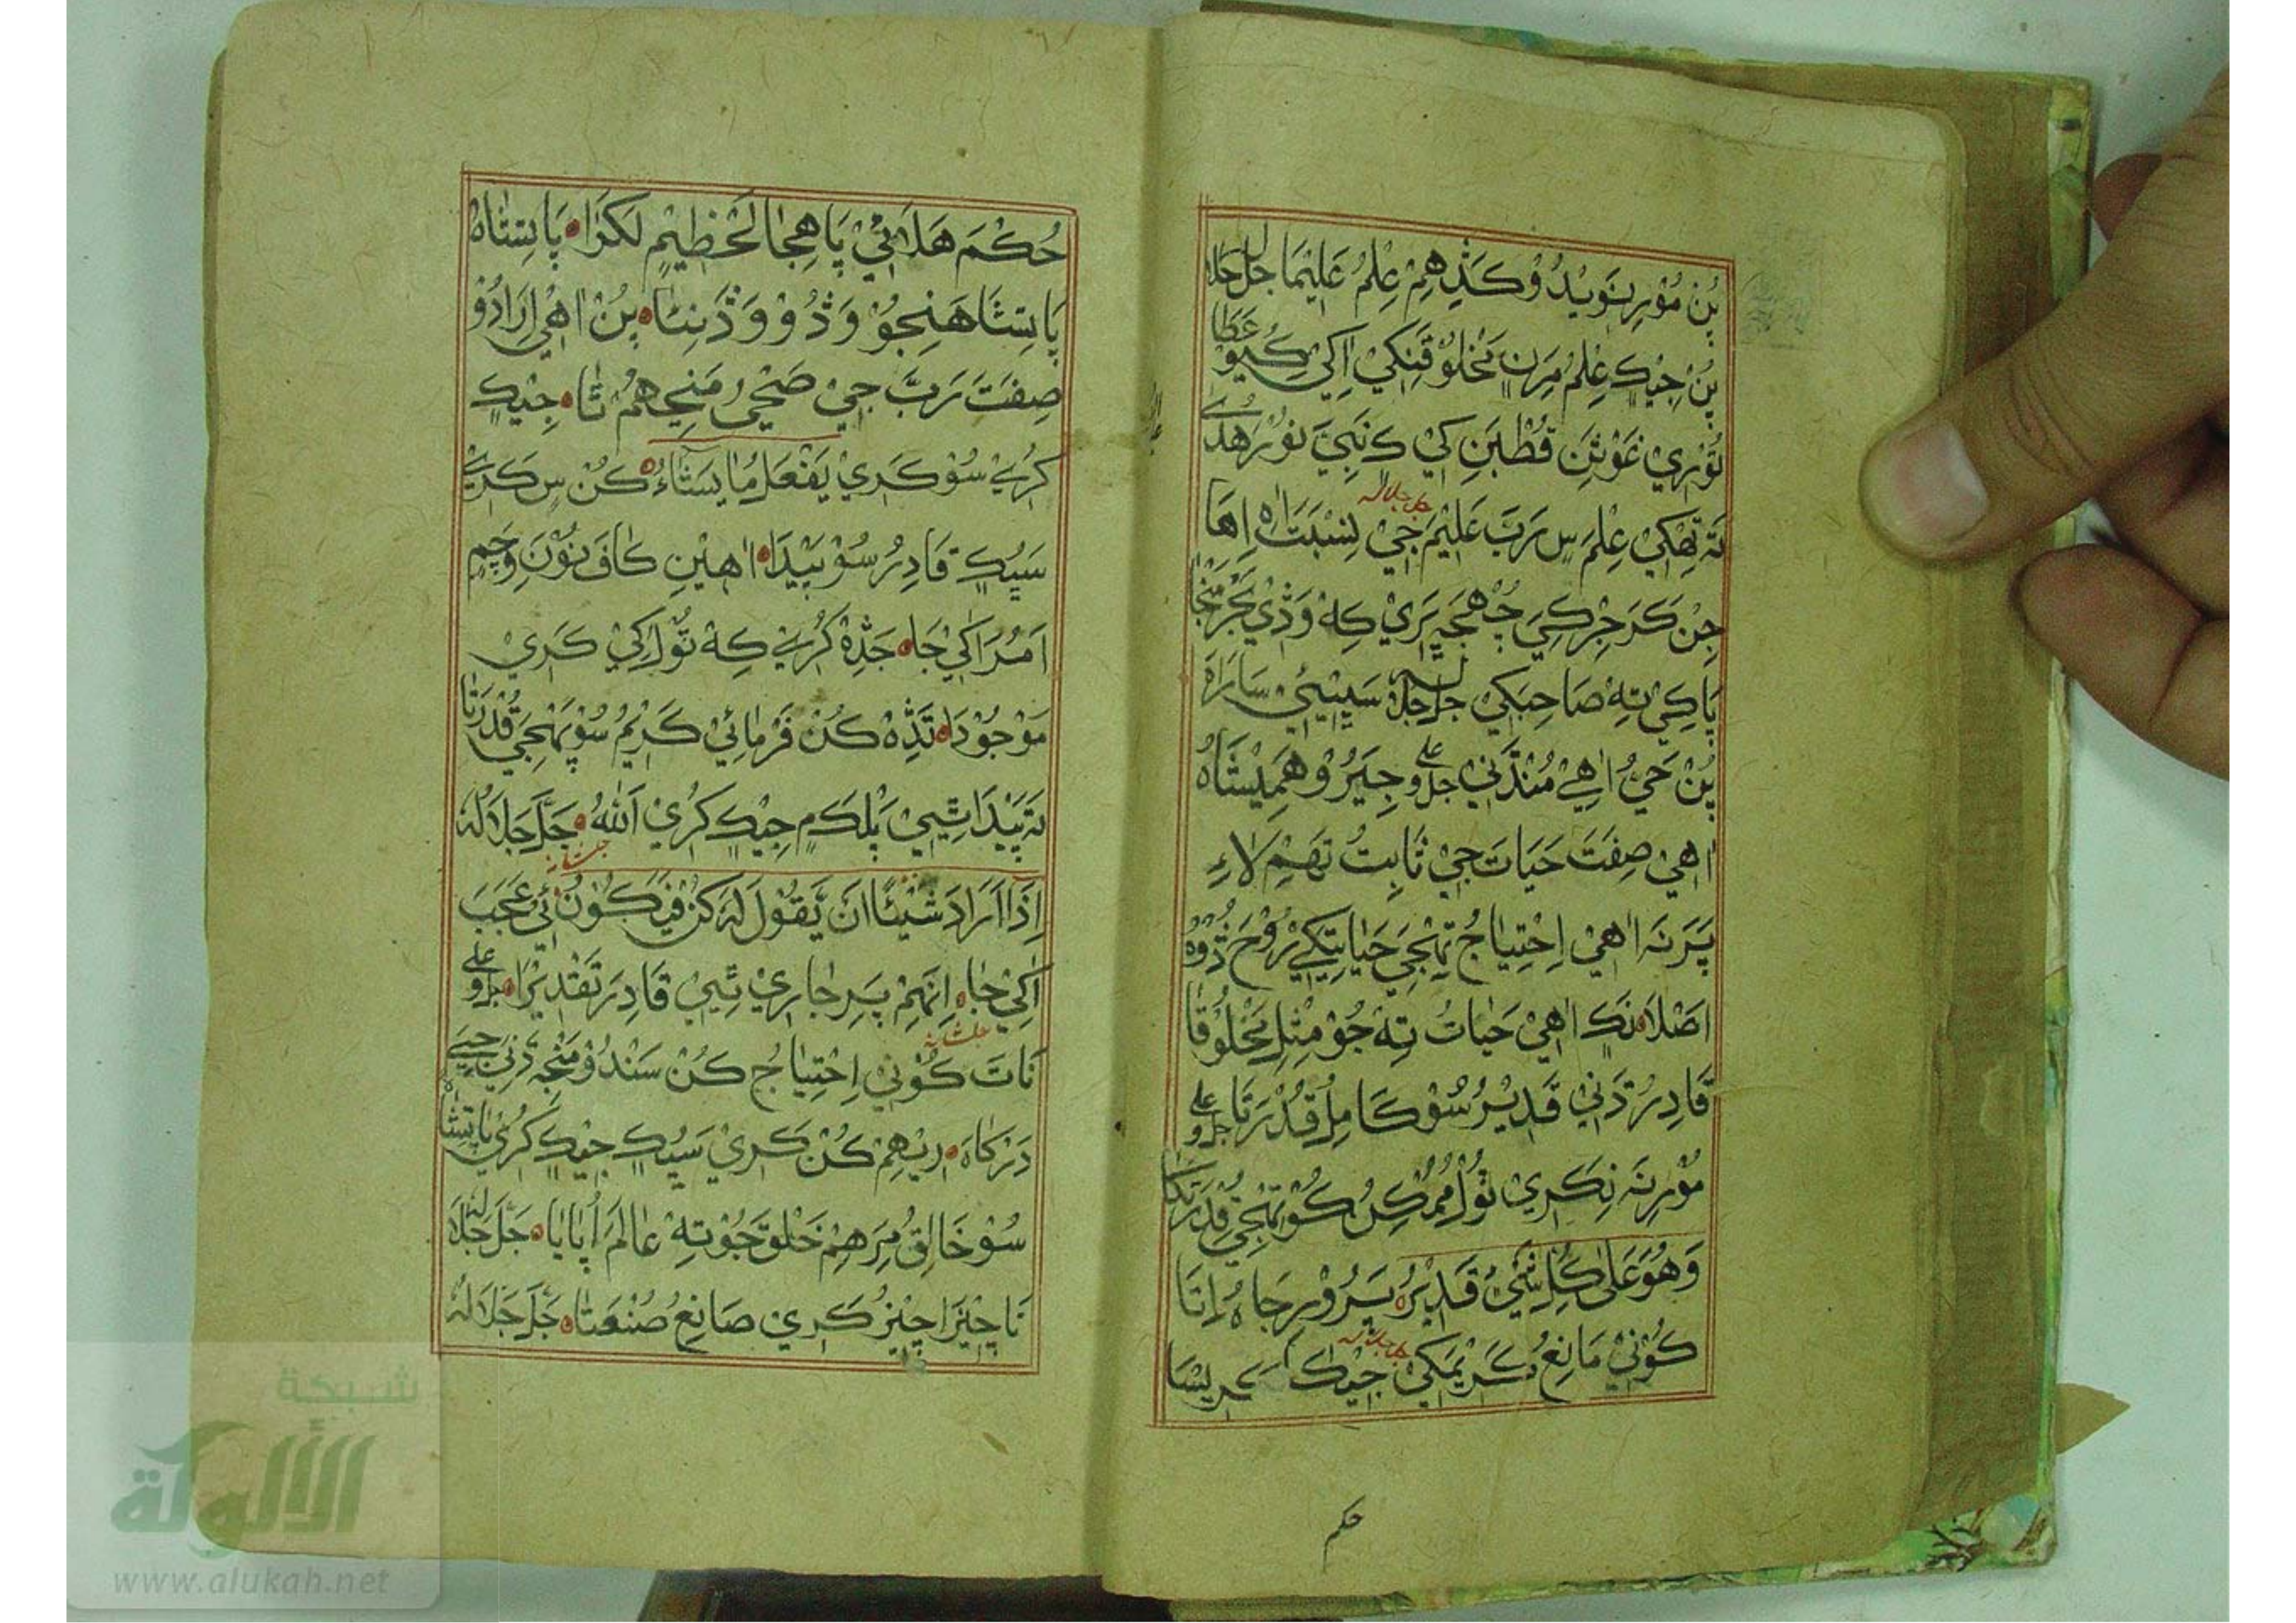 پُنْ مُوْرِ نَوِيْدُ وْ كَڎِهِمْ عِلْمُ عَلِيْمَا جل جلاله
پُنْ جِيْڪِ عِلْمُ مِرَنِ مَخْلُوْقَنِكِيْ اِكِيْ كِيُوْ عَطَا
تُوْرِيْ غَوْثَنِ قُطْبَنِ كِيْ كِ نَبِيَ نُوْرَ هُدٰي
تَہ تِهْكِيْ عِلْمَ سِ رَبَّ عَلِيْمَ جِيْ نِسْبَتَ اِهَا
جل جلاله
جِنْ كَرَ جِرْكِيَ چُهْجَہ پَرِيْ كِهْ وَڎِيْ بَحْرَ مَنْجَا
پَاكِيْ تِهْ صَاحِبَكِيْ جل جلاله سَڀِيْئِيْ سَارَاہ
پُنْ حَيُّ اٰهِيْ مُنْڎَنِيْ جل و علي جِيَرُوْ هَمِيْشَاہ
اٰهِيْ صِفَتَ حَيَاتَ جِيْ ثَابِتُ تَهِمْ لَاءِ
پَرَ نَہ اٰهِيْ اِحْتِيَاجُ تِهْجِيَ حَيَاتِكِيْ رُوْحَ
اَصْلَا نَكِ اٰهِيْ حَيَاتُ تِهْ جُوْ مِثْلِ مَخْلُوْقَا
قَادِرُ ڎَنِيْ قَدِيْرُ سُوْ كَامِلُ قُدْرَتَا جل و علي
مُوْرِ نَہ نِكَرِيْ تُوْلُ مُمْكِنُ كُوْ تِهْجِيْ قُدْرَتَكَا
وَهُوَ عَلٰي كُلِّ شَيْءٍ قَدِيْرُ ہ پَرُوْرِ جَاہ اِتَا
كُوْنِيْ مَانِعُ كَرِيْمَكِيْ جِيْڪِ كرِيْسَا
جل جلاله
حكم
حُكْمَ هَلَائِيْ پَاهِجَا لَحْظِيْمِ لَكَرَا ہ پَاتِشَاہ
پَاتِشَاهَنِجُوْ وَڎُوْ وَڎَنِئَا ہ پُنْ اٰهِيْ اِرَادُوْ
صِفَتَ رَبَّ جِيْ صَحِيْ مَنْجِهُمْ تَا ہ جِيْڪِ
كُرِيْ سُوْ كَرِيْ يَفْعَلُ مَا يَشَآءُ ہ كُنْ سِ كَرِيْ
سَڀُڪِ قَادِرُ سُوْ پَيْدَا ہ اٰهِيْنِ كَافَ نُوْنَ وِچَمِ
اَمُرَ اَكِيْ جَا ہ جَڎِهْ كُرِيْ كِهْ تُوْلَكِيْ كَرِيْ
مَوْجُوْدَا ہ تَڎِهْ كُنْ فَرْمَائِيْ كَرِيْمُ سُوْ پَهْجِيْ قُدْرَتَا
تَہ پَيْدَا تِيِيْ پَلَكَ مِ جِيْڪِ كُرِيْ اَللّٰهُ ہ جَلَّ جَلَالُہ
جل شانه
اِذَا اَرَادَ شَيْئًا اَنْ يَّقُوْلَ لَہ كُنْ فَيَكُوْنُ ئِيْ عَجَبَ
اَكِيْ جَا ہ اِنَهِمْ پَرِ جَارِيْ تِيِيْ قَادِرَ تَقْدِيْرَا ہ جل و علي
جل شانه
نَاتَ كُوْنِيْ اِحْتِيَاجُ كُنْ سَنْدُوْ مَنْجِهْ ڎَنِيْ جِيَ
دَرْگَاہ ہ اِرِيْهِمْ كُنْ كَرِيْ سَڀُڪِ جِيْڪِ كُرِيْ پَاتِشَاہ
سُوْ خَالِقُ مِرَهِمْ خَلْقَ جُوْ تِهْ عَالَمَ اُپَايَا ہ جَلَّ جَلَالَہ
نَاچِيْزَا چِيْزُ كَرِيْ صَانِعُ صُنْعَتَا ہ جَلَّ جَلَالُہ
شبكة
الألوكة
www.alukah.net